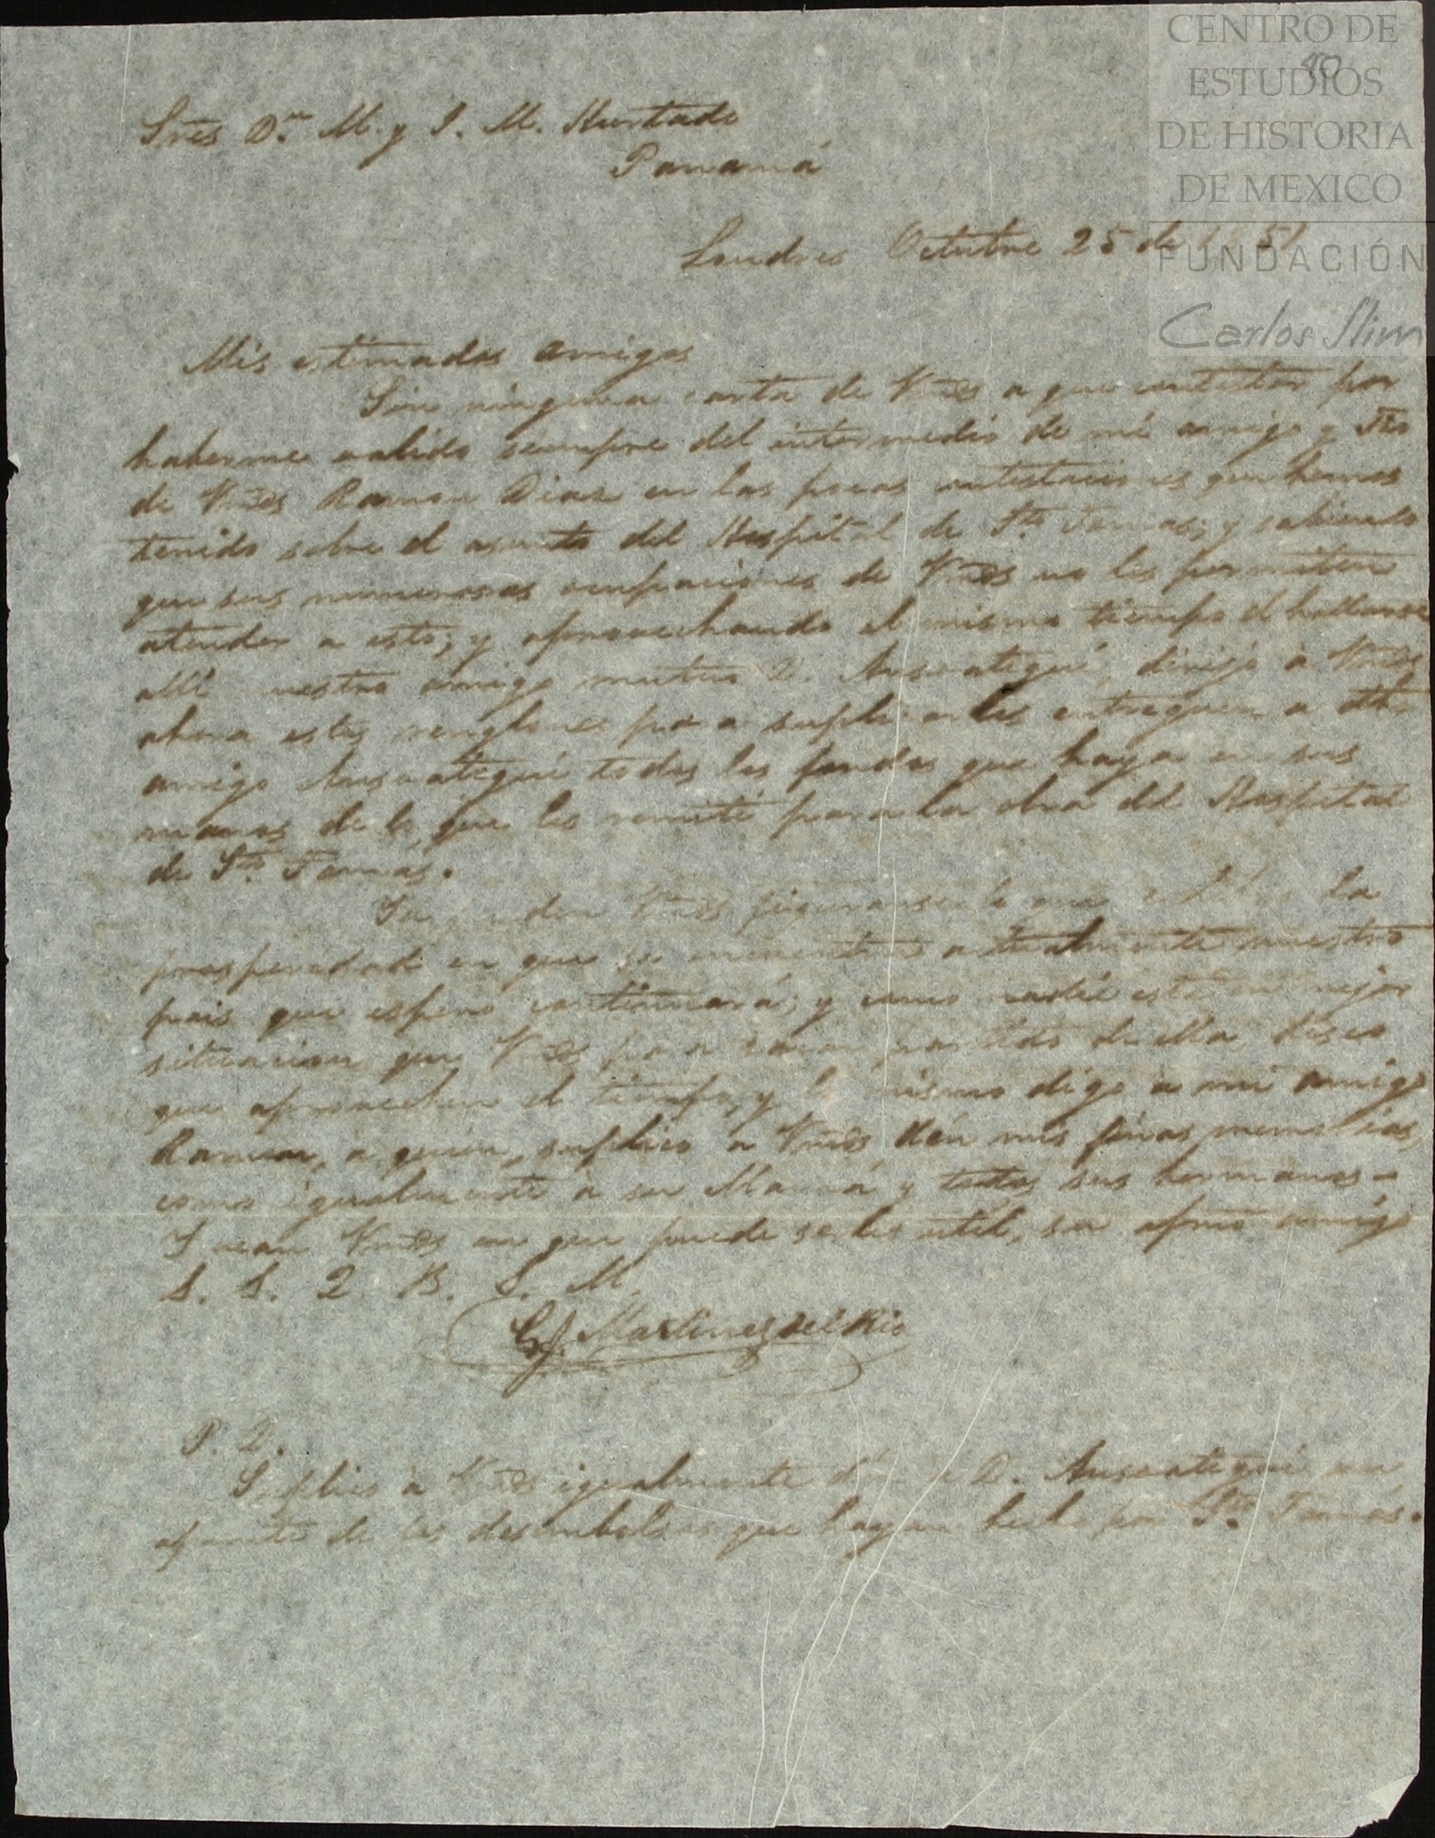 CENTRO DE
ESTUDIOS
DE HISTORIA
DE MEXICO
FUNDACIÓN
Carlos Slim
Sres D.n M. y J. M. Hurtado
Panamá
Londres Octubre 25 de 1851
Mis estimados amigos
Sin ninguna carta de Vmes a que contestar por
haberme valido siempre del intermedio de mi amigo y Tio
de Vmes Ramon Diaz en las pocas contestaciones que hemos
tenido sobre el asunto del Hospital de Sto. Tomas; y sabiendo
que sus numerosas ocupaciones de Vmes no les permiten
atender a esto; y aprovechando al mismo tiempo el hallarse
allí nuestro amigo mutuo D. Ansoategui, dirijo à Vmes
ahora estos renglones para suplicarles entreguen a dho
amigo Ansoategui todos los fondos que haya en sus
manos de lo que les remití para la obra del Hospital
de Sto. Tomas.
Ya pueden Vmes figurarse lo que la
prosperidad en que se encuentra actualmente nuestro
pais que espero continuará; y como nadie está en mejor
situacion que Vmes para sacar partido de ella, deseo
que aprovechen el tiempo, y lo mismo digo a mi amigo
Ramon, a quien, suplico a Vmes dén mis finas memorias,
como igualmente à su Mamá y todos sus hermanos -
Y vean Vmes en que puede serles util, su afmo amigo
S. S. Q. B. S. M.
G. J. Martinez del Rio
P. D.
Suplico à Vmes igualmente dén à D. Ansoategui un
apunte de los desembolsos que hayan hecho por Sto. Tomás.